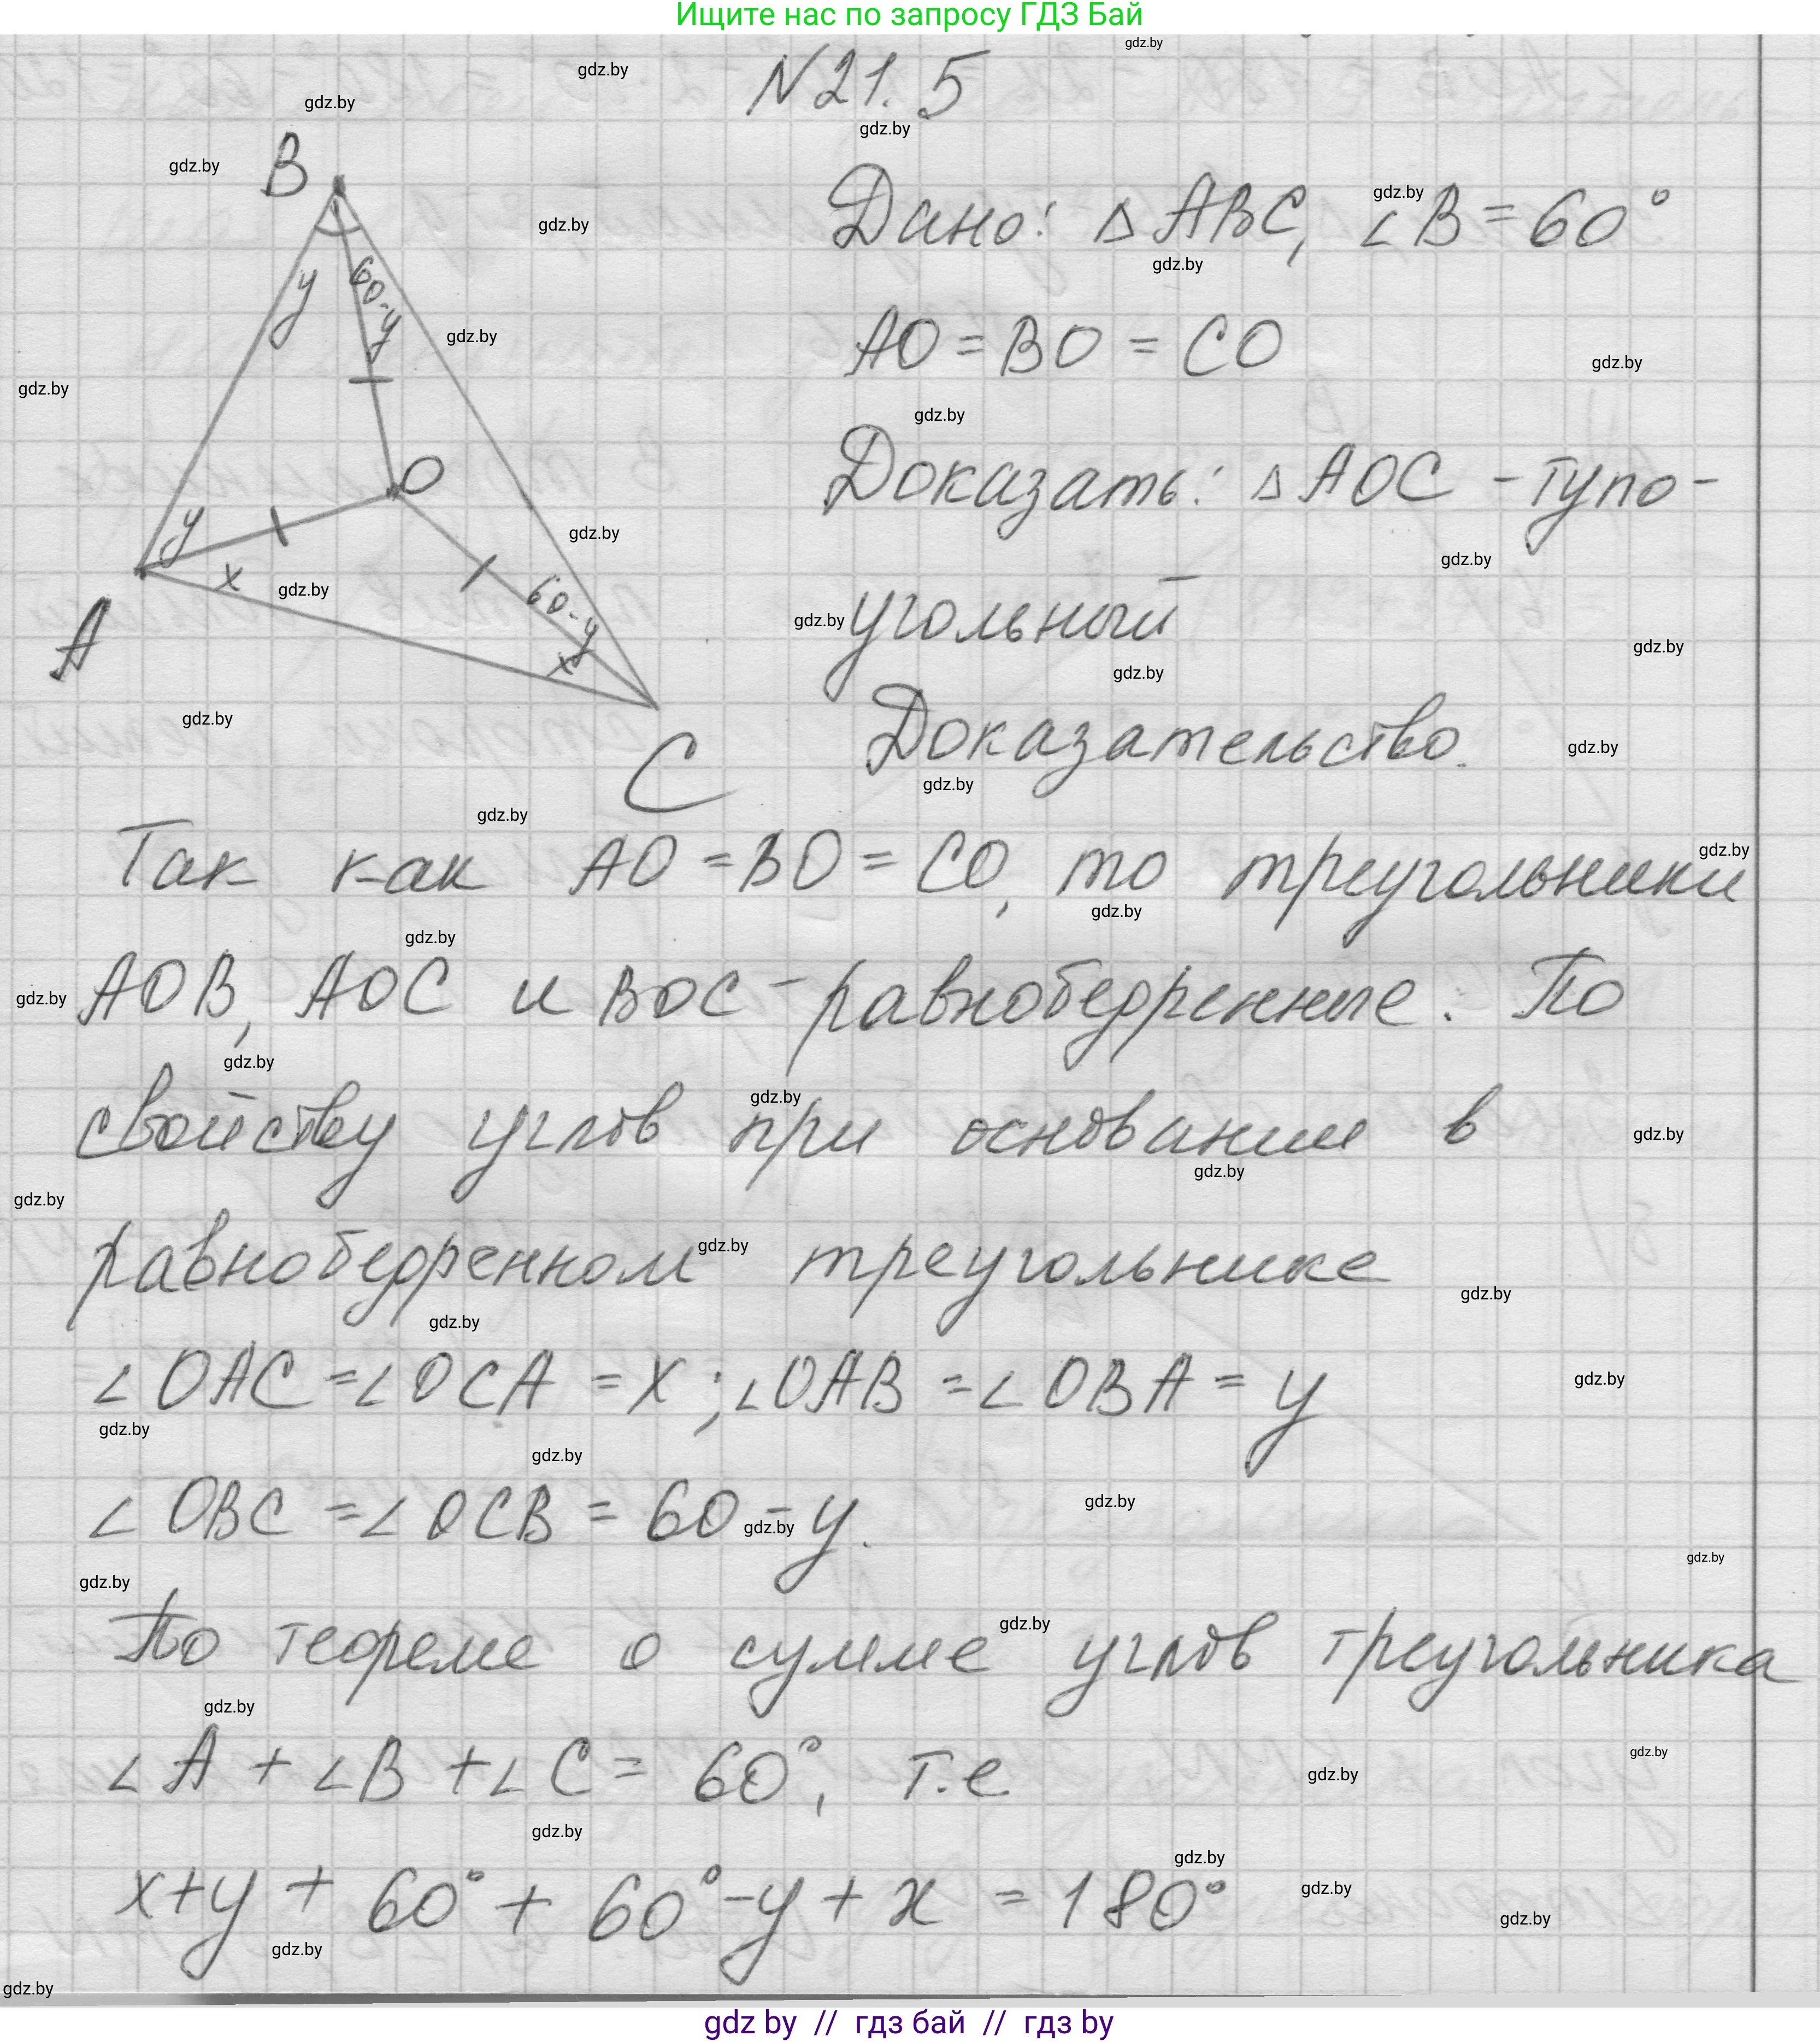 Ищите нас по запросу ГДЗ Бай
N 21. 5
B
Дано: △ ABC, ∠B = 60°
y
60-y
AO = BO = CO
O
Доказать: △ AOC - тупо-
y
x
60-y
x
угольный
A
C
Доказательство.
Так как AO = BO = CO, то треугольники
AOB, AOC и BOC - равнобедренные. По
свойству углов при основании в
равнобедренном треугольнике
∠ OAC = ∠ OCA = x ; ∠OAB = ∠ OBA = y
∠ OBC = ∠ OCB = 60 - y.
По теореме о сумме углов треугольника
∠A + ∠B + ∠C = 60°, т.е
x+y + 60° + 60° - y + x = 180°
gdz by // гдз бай // гдз by